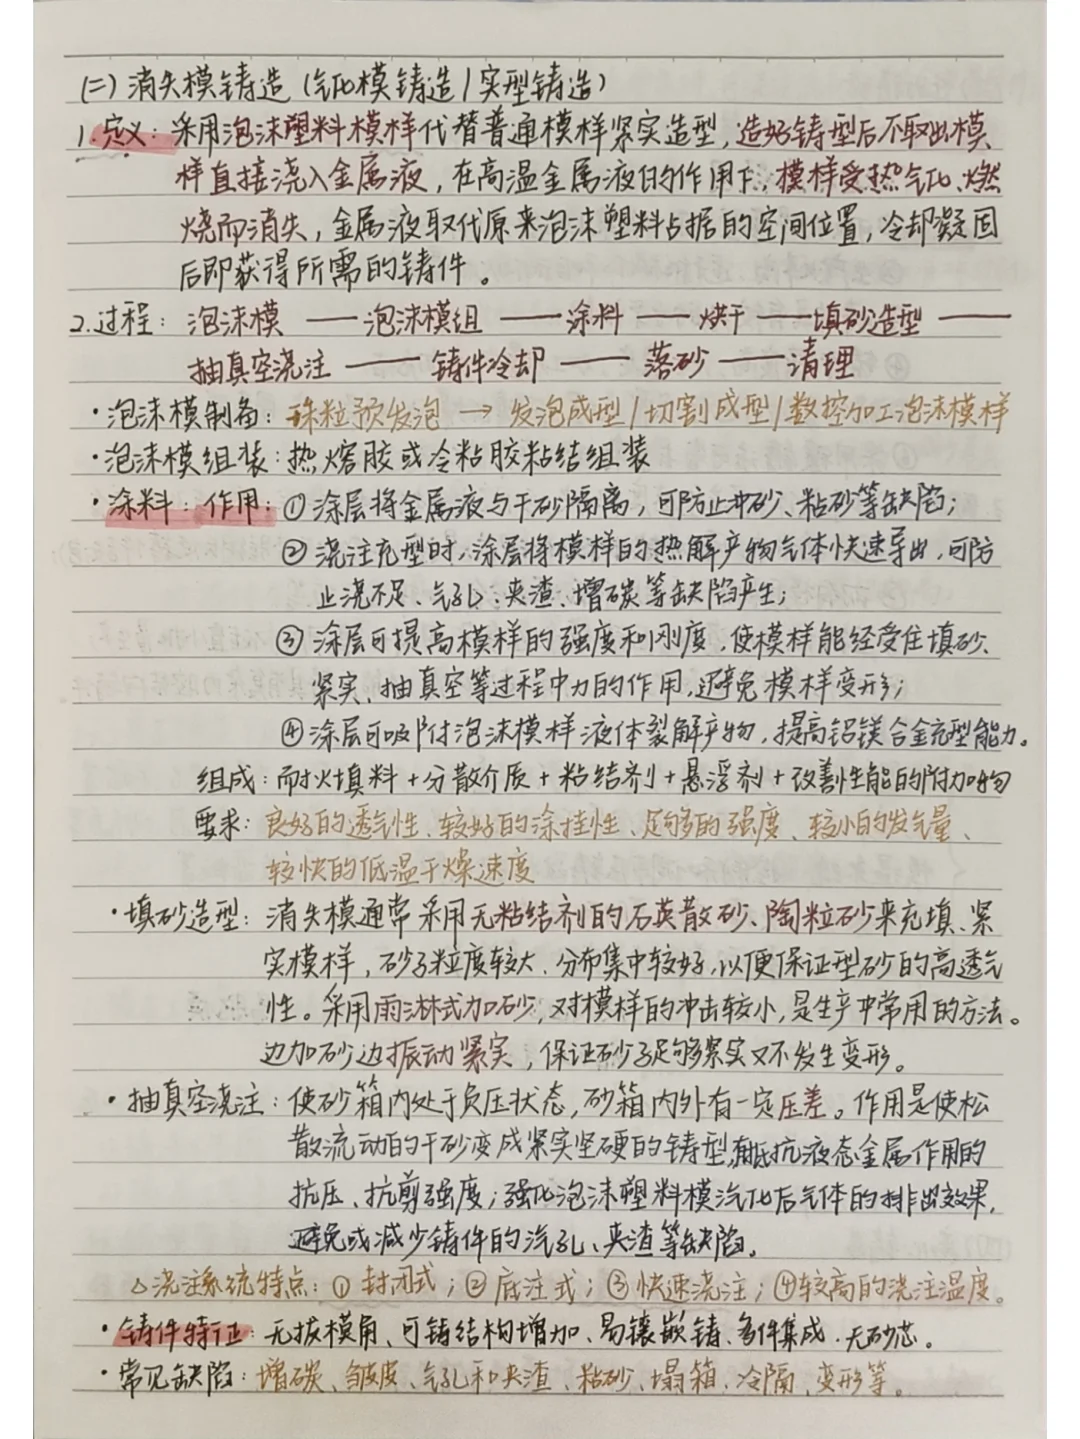 (二)消失模铸造(气化模铸造/实型铸造)
1.定义:采用泡沫塑料模样代替普通模样紧实造型,造好铸型后不取出模
样直接浇入金属液,在高温金属液的作用下,模样受热气化、燃
烧而消失,金属液取代原来泡沫塑料占据的空间位置,冷却凝固
后即获得所需的铸件。
2.过程:泡沫模——泡沫模组——涂料——烘干——填砂造型——
抽真空浇注——铸件冷却——落砂——清理
·泡沫模制备:珠粒预发泡→发泡成型/切割成型/数控加工泡沫模样
·泡沫模组装:热熔胶或冷粘胶粘结组装
·涂料:作用:①涂层将金属液与干砂隔离,可防止冲砂、粘砂等缺陷;
②浇注充型时,涂层将模样的热解产物气体快速导出,可防
止浇不足、气孔、夹渣、增碳等缺陷产生;
③涂层可提高模样的强度和刚度,使模样能经受住填砂、
紧实、抽真空等过程中力的作用,避免模样变形;
④涂层可吸附泡沫模样液体裂解产物,提高铝镁合金充型能力。
组成:耐火填料+分散介质+粘结剂+悬浮剂+改善性能的附加物
要求:良好的透气性、较好的涂挂性、足够的强度、较小的发气量、
较快的低温干燥速度
·填砂造型:消失模通常采用无粘结剂的石英散砂、陶粒砂来充填、紧
实模样,砂子粒度较大、分布集中较好,以便保证型砂的高透气
性。采用雨淋式加砂,对模样的冲击较小,是生产中常用的方法。
边加砂边振动紧实,保证砂子足够紧实又不发生变形。
·抽真空浇注:使砂箱内处于负压状态,砂箱内外有一定压差。作用是使松
散流动的干砂变成紧实坚硬的铸型,有抵抗液态金属作用的
抗压、抗剪强度;强化泡沫塑料模汽化后气体的排出效果,
避免或减少铸件的汽孔、夹渣等缺陷。
△浇注系统特点:①封闭式;②底注式;③快速浇注;④较高的浇注温度。
·铸件特征:无拔模角、可铸结构增加、易镶嵌铸、多件集成、无砂芯。
·常见缺陷:增碳、皱皮、气孔和夹渣、粘砂、塌箱、冷隔、变形等。